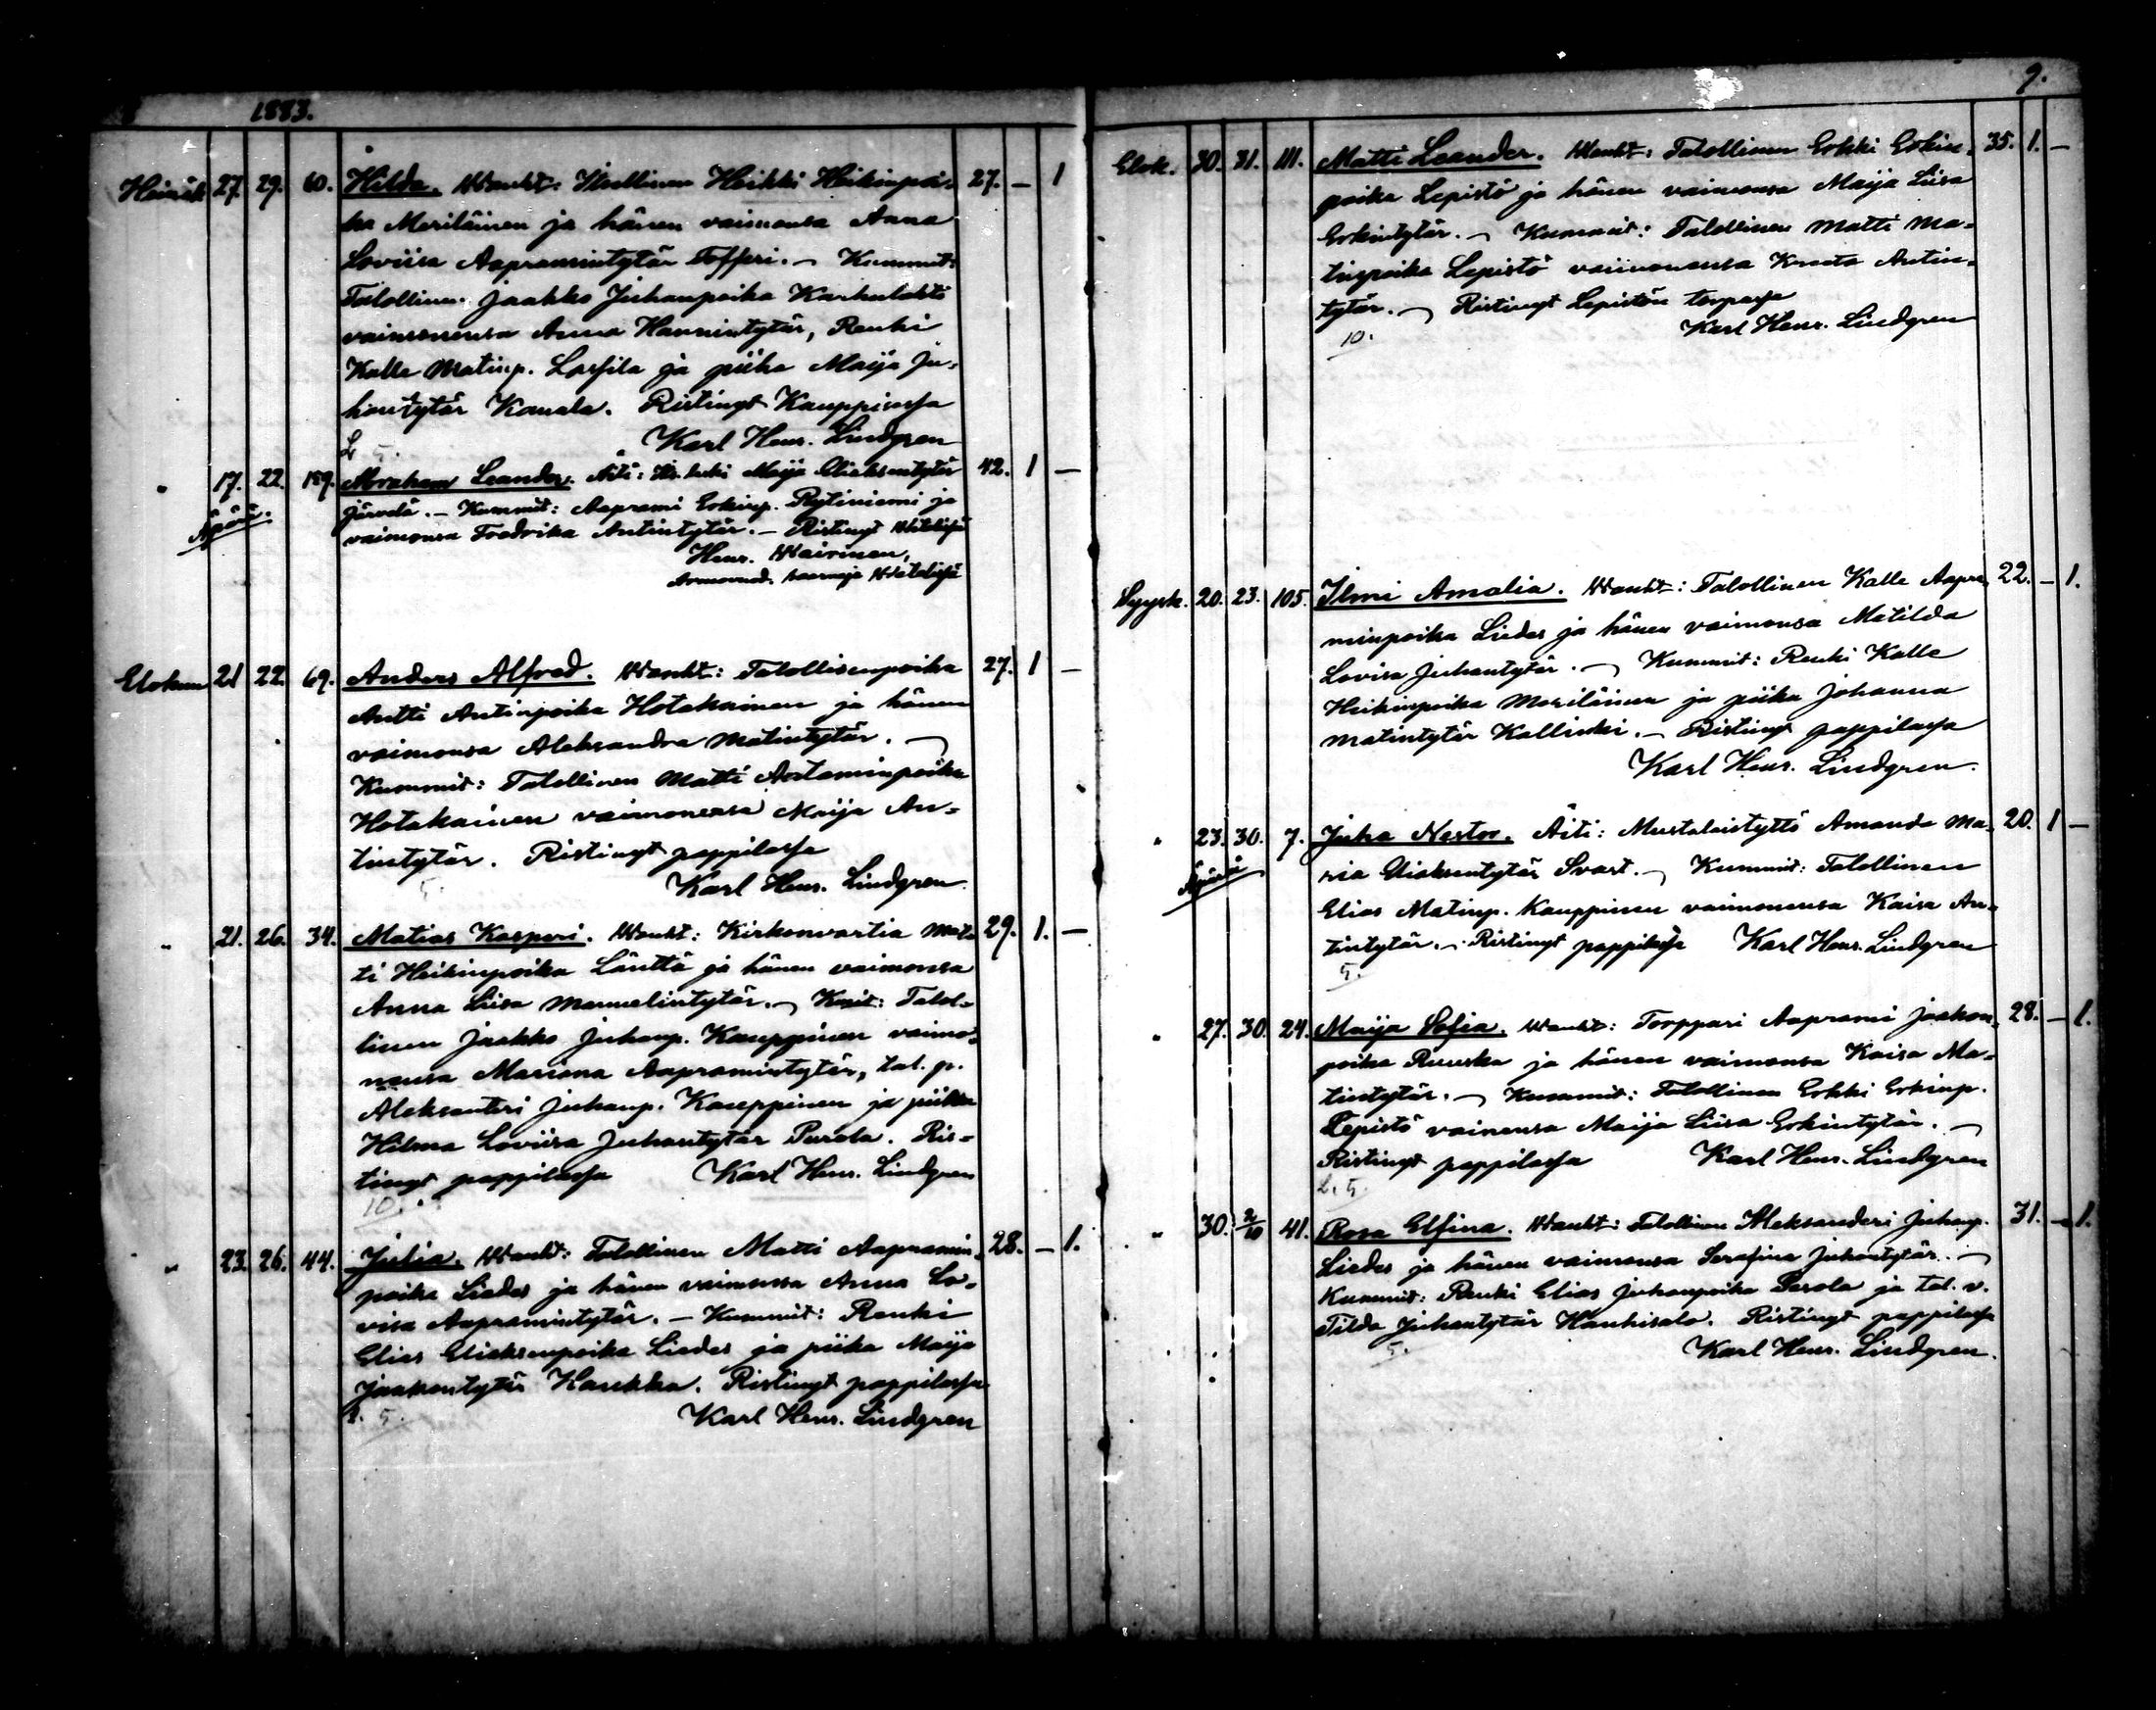 1883.
Heinäk 27. 29. 60. Hilda. Wanht: Itsellinen Heikki Heikinpoi- 27. — 1
ka Meriläinen ja hänen vaimonsa Anna
Loviisa Aapramintytär Tofferi. — Kummit:
Talollinen Jaakko Juhanpoika Karhulahti
vaimonensa Anna Hannintytär, Renki
Kalle Matinp. Lassila ja piika Maija Ju-
hontytär Kanala. Ristinyt Kauppisessa
L 5. Karl Henr. Lindgren
" 17. 22. 159. Abraham Leander. Äiti: Its. leski Maija Eliaksentytär 42. 1 —
Äpärä. Järvelä. — Kummit: Aaprami Erkinp. Pytiniemi ja
vaimonsa Fredrika Antintytär. — Ristinyt Wetelissä
Henr. Wairinen,
Armovuod. saarnaja Wetelissä
Elokuu 21 22 69. Anders Alfred. Wanht: Talollisenpoika 27. 1 —
Antti Antinpoika Hotakainen ja hänen
vaimonsa Aleksandra Matintytär. —
Kummit: Talollinen Matti Aataminpoika
Hotakainen vaimonensa Maija An-
tintytär. Ristinyt pappilassa
5. Karl Henr. Lindgren.
" 21. 26. 34. Matias Kasperi. Wanht: Kirkonvartia Mat- 29. 1. —
ti Heikinpoika Länttä ja hänen vaimonsa
Anna Liisa Mannelintytär. — Kmit: Talol-
linen Jaakko Juhanp. Kauppinen vaimo-
nensa Mariana Aapramintytär, tal. p.
Aleksanteri Juhanp. Kauppinen ja piika
Hilma Loviisa Juhantytär Purola. Ris-
tinyt pappilassa Karl Henr. Lindgren
10.
" 23. 26. 44. Julia. Wanht: Talollinen Matti Aapramin- 28. — 1.
poika Liedes ja hänen vaimonsa Anna Lo-
visa Aapramintytär. — Kummit: Renki
Elias Eliaksenpoika Liedes ja piika Maija
Jaakontytär Haukka. Ristinyt pappilassa
L. 5. Karl Henr. Lindgren
9.
Elok. 30. 31. 111. Matti Leander. Wanht: Talollinen Erkki Erkin- 35. 1. —
poika Lepistö ja hänen vaimonsa Maija Liisa
Erkintytär. — Kummit: Talollinen Matti Ma-
tinpoika Lepistö vaimonensa Kreeta Antin-
tytär. — Ristinyt Lepistön torpassa
10. Karl Henr. Lindgren
Syysk. 20. 23. 105. Ilmi Amalia. Wanht: Talollinen Kalle Aapra- 22. — 1.
minpoika Liedes ja hänen vaimonsa Matilda
Lovisa Juhantytär. — Kummit: Renki Kalle
Heikinpoika Meriläinen ja piika Johanna
Matintytär Kallioski. — Ristinyt pappilassa
Karl Henr. Lindgren.
" 23. 30. 7. Juha Nestor. Äiti: Mustalaistyttö Amanda Ma- 20. 1 —
Äpärä ria Eliaksentytär Svart. — Kummit: Talollinen
Elias Matinp. Kauppinen vaimonensa Kaisa An-
tintytär. — Ristinyt pappilassa Karl Henr. Lindgren
5.
" 27. 30. 24. Maija Sofia. Wanht: Torppari Aaprami Jaakon- 28. — 1.
poika Ruuska ja hänen vaimonsa Kaisa Ma-
tintytär. — Kummit: Talollinen Erkki Erkinp.
Lepistö vainensa Maija Liisa Erkintytär. —
Ristinyt pappilassa Karl Henr. Lindgren
L. 5.
" 30. 2/10 41. Rosa Elfina. Wanht: Talollinen Aleksanderi Juhanp. 31. — 1.
Liedes ja hänen vaimonsa Serafina Juhontytär. —
Kummit: Renki Elias Juhanpoika Parola ja tal. v.
Tilda Juhantytär Hanhisalo. Ristinyt pappilassa
5. Karl Henr. Lindgren.